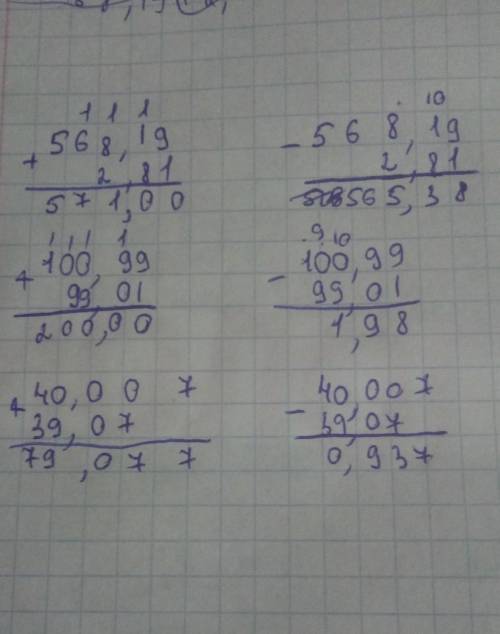 1 1 1
568,19
+
2,81
571,00
10
568,19
-
2,81
565,38
1 1 1 1
100,99
+
99,01
200,00
9 10
100,99
-
99,01
1,98
40,00 7
+
39,07
79,07 7
40,007
-
39,07
0,937